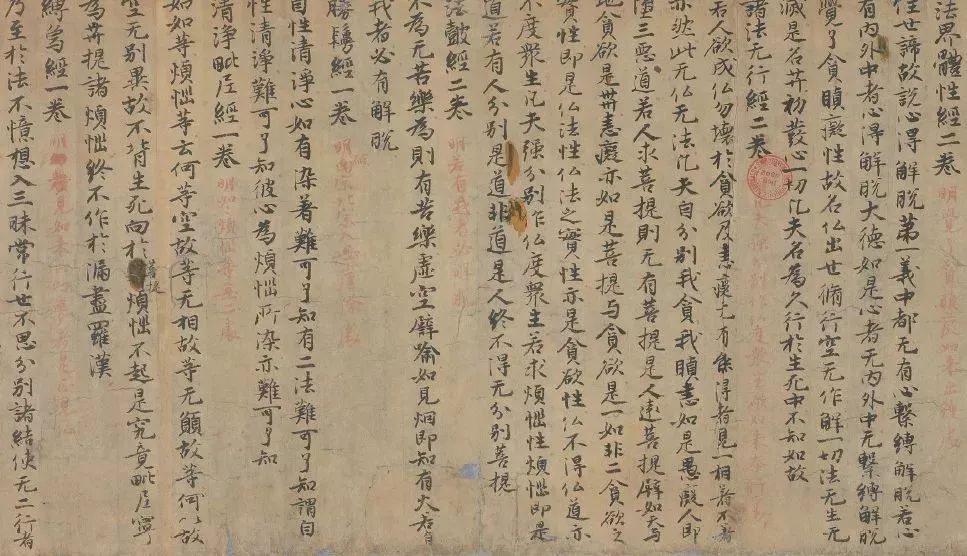 法界體性經二卷
住世諦故說心得解脫第一義中都无有心繫縛解脫若心
有内外中者心得解脫大德如是心者无内外中无繫縛解脫
覺了貪瞋癡性故名仏出世循行空无作解一切法无生无
滅是名𦬇初發心一切凡夫名為久行於生死中不知如故
諸法无行經二卷
若人欲成仏勿壞於貪欲及恚癡
亦然此无仏无法凡夫自分別我貪我瞋恚如是愚癡人即
墮三惡道若人求菩提則无有菩提是人遠菩提辟如天与
地貪欲是𦬇恚癡亦如是菩提与貪欲是一如非二貪欲之
實性即是仏法性仏法之實性亦是貪欲性仏不得仏道亦
不度衆生凡夫強分別作仏度衆生若求煩惱性煩惱即是
道若有人分別是道非道是人終不得无分別菩提
法鼓經二卷
不為无苦樂為則有苦樂虛空辟喻如見烟即知有火若有
我者必有解脫
勝鬘經一卷
自性清淨心如有染著難可了知有二法難可了知謂自
性清淨難可了知彼心為煩惱所染亦難可了知
清淨毗尼經一卷
如如等煩惱等云何等空故等无相故等无願故等何以故
空无別異故不背生死向於菩提煩惱不起是究竟毗尼寧
為菩提諸煩惱終不作於漏盡羅漢
縛為經一卷
乃至於法不憶想入三昧常行世不思分別諸結使无二行者